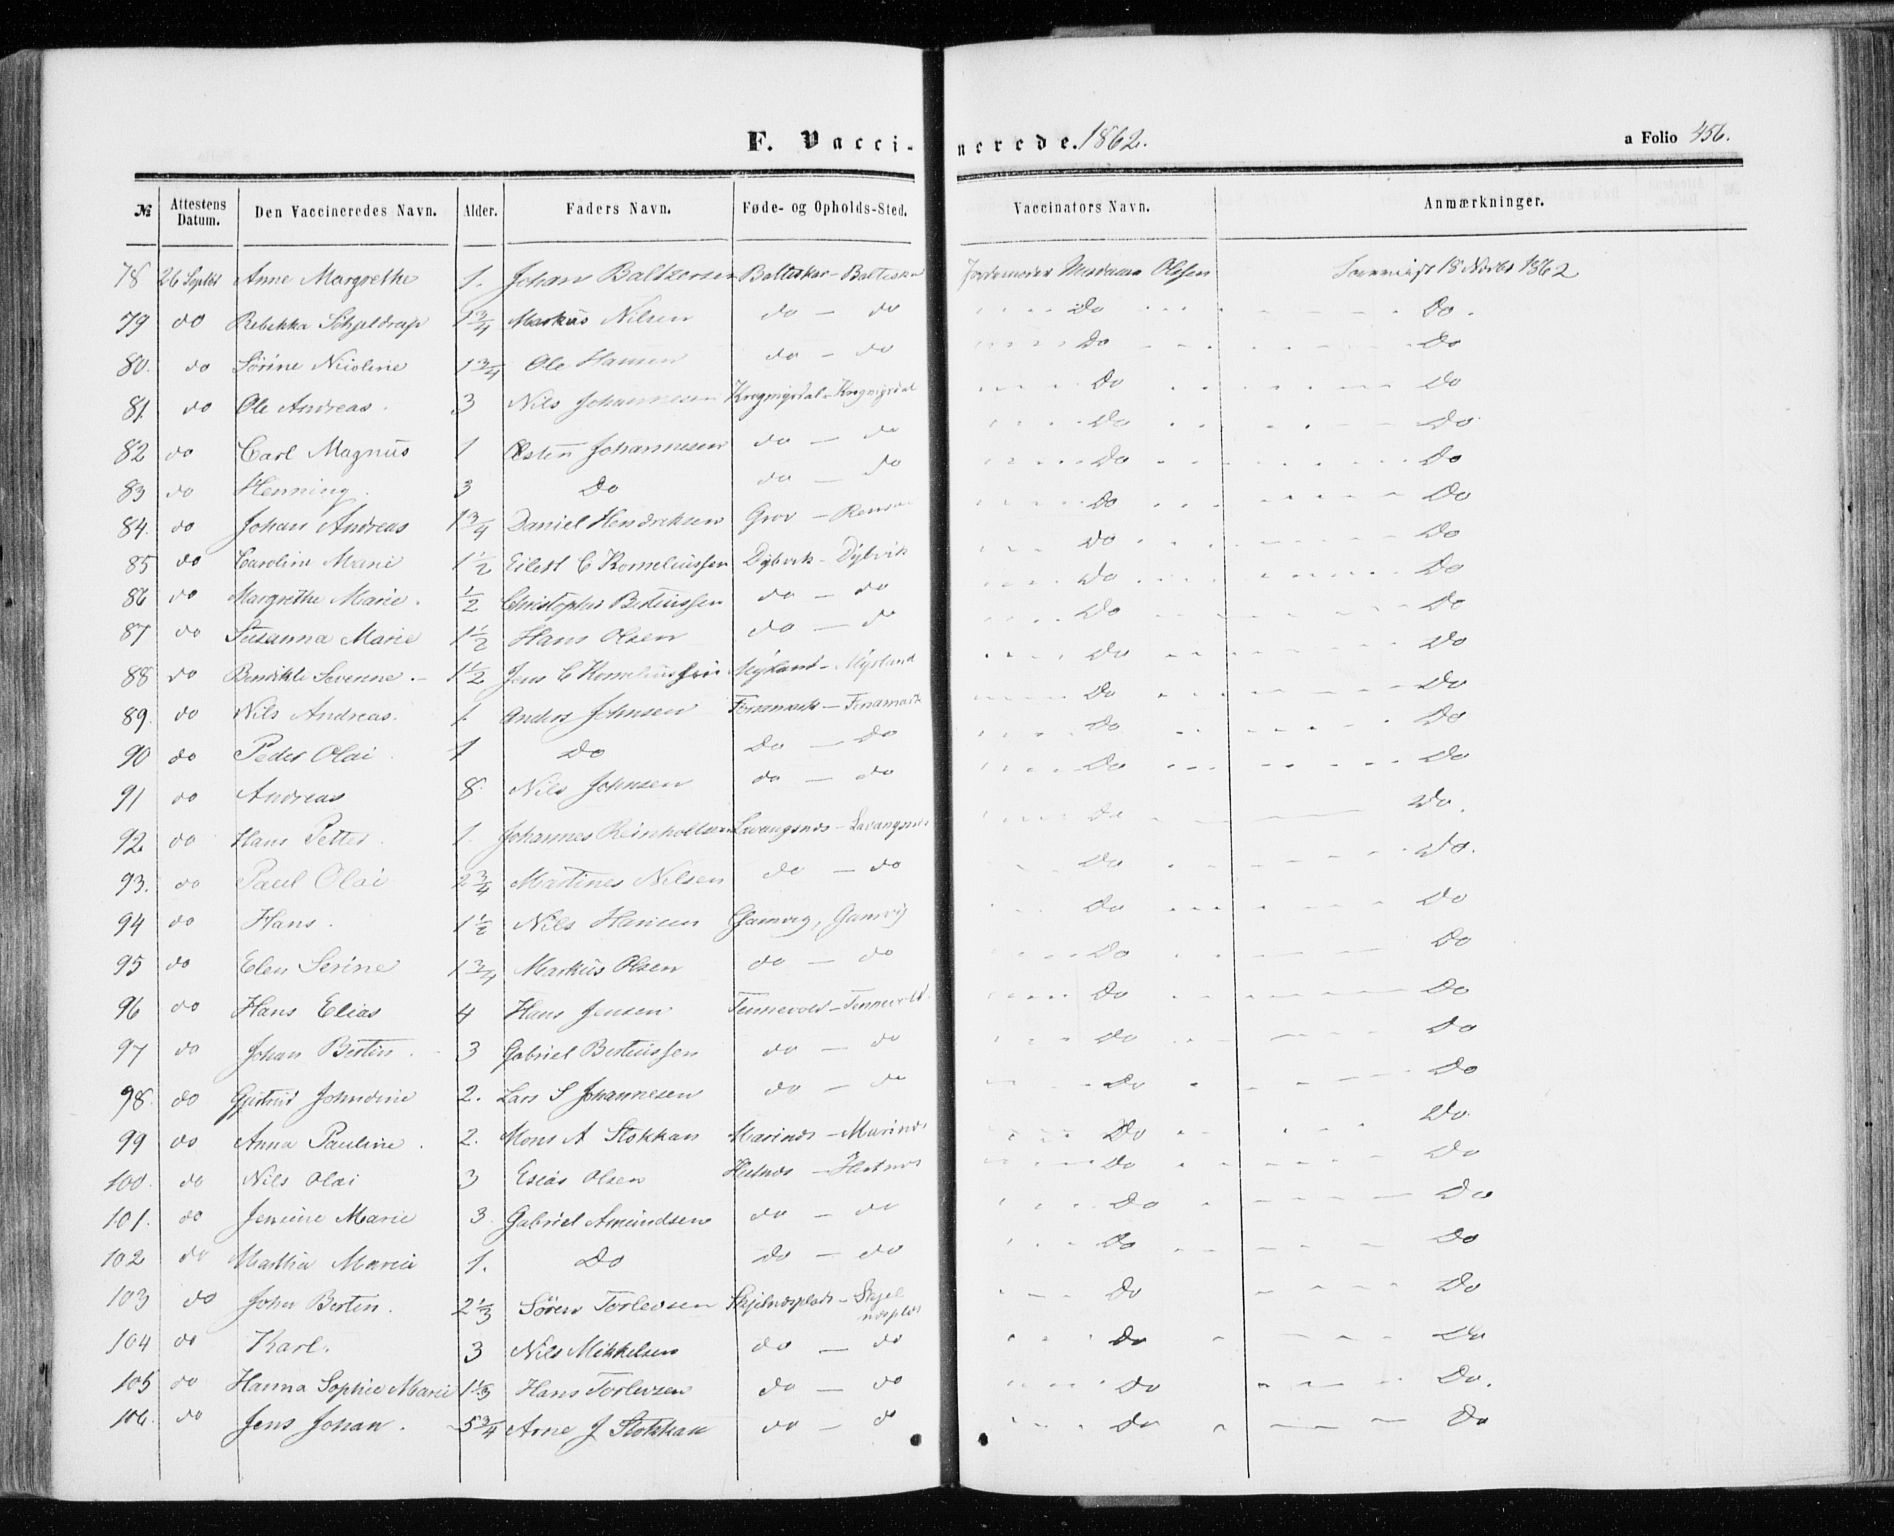 F. Vaccinerede. 1862. a Folio 456.
№ Attestens Datum. Den Vaccineredes Navn. Alder. Faders Navn. Føde- og Opholds-Sted. Vaccinators Navn. Anmærkninger.
78 26 Septbr Anne Margrethe 1. Johan Baltzersen Balteskar - Balteskar Jordemoder Madame Olsen 18 Novbr 1862
79 do Rebekka Schjeldrup 1 3/4 Markus Nilsen do - do Do Do.
80. do Sørine Nicoline 1 3/4 Ole Hansen do - do Do Do
81. do Ole Andreas. 3 Nils Johannesen Krognigsdal - Krognigsdal Do Do
82 do Carl Magnus 1 Østen Johannesen do - do Do Do
83 do Henning. 3 Do do - do Do Do
84. do Johan Andreas 1 3/4 Daniel Hendriksen Grov - Do Do
85 do Caroline Marie 1 1/2 Eilert C Korneliussen Dybvik - Dybvik Do Do
86 do Margrethe Marie. 1/2 Christopher Berteussen do - do Do Do
87 do Susanna Marie 1 1/2 Hans Olsen do - do Do Do
88 do Bendikte Severine. - 1 1/2 Jens C Korneliussen Myrland - Myrland Do Do
89. do Nils Andreas. 1. Anders Johnsen Forsamark - Forsamark Do Do
90 do Peder Olai. 1 Do Do - Do Do Do
91 do Andreas 8 Nils Johnsen do - do Do Do
92 do Hans Petter. 1. Johannes Reinholtsen Lavangsnes - Lavangsnes Do Do.
93. do Paul Olai 2 3/4 Martines Nilsen do - do Do Do.
94 do Hans. 1 1/2 Nils Hansen Gamvig, Gamvig Do Do
95 do Elen Serine 1 3/4 Markus Olsen do - do Do Do
96 do Hans Elias 4 Hans Jensen Tennevold - Tennevold Do Do
97 do Johan Bertin. - 3 Gabriel Berteussen do - do Do Do
98. do Gjertrud Johndine 2. Lars S Johannesen do - do Do Do
99 do Anna Pauline. 2. Mons A Stokkan Marines - Marines Do Do
100. do Nils Olai 3 Esias Olsen Hestnes - Hestnes Do Do
101. do Jensine Marie 3. Gabriel Amundsen do - do Do Do
102 do Marthia Maria 1. Do Do - do Do Do
103 do John Bertin. 2 1/3 Sören Torlevsen Skjelnesplads - Skjel
nesplds Do Do
104 do Karl. 3 Nils Mikkelsen do - do Do Do
105 do Hanna Sophie Marie 1 1/3 Hans Torlevsen do - do Do Do.
106. do Jens Johan. - 5 3/4 Arne J Stokkan do - do Do Do